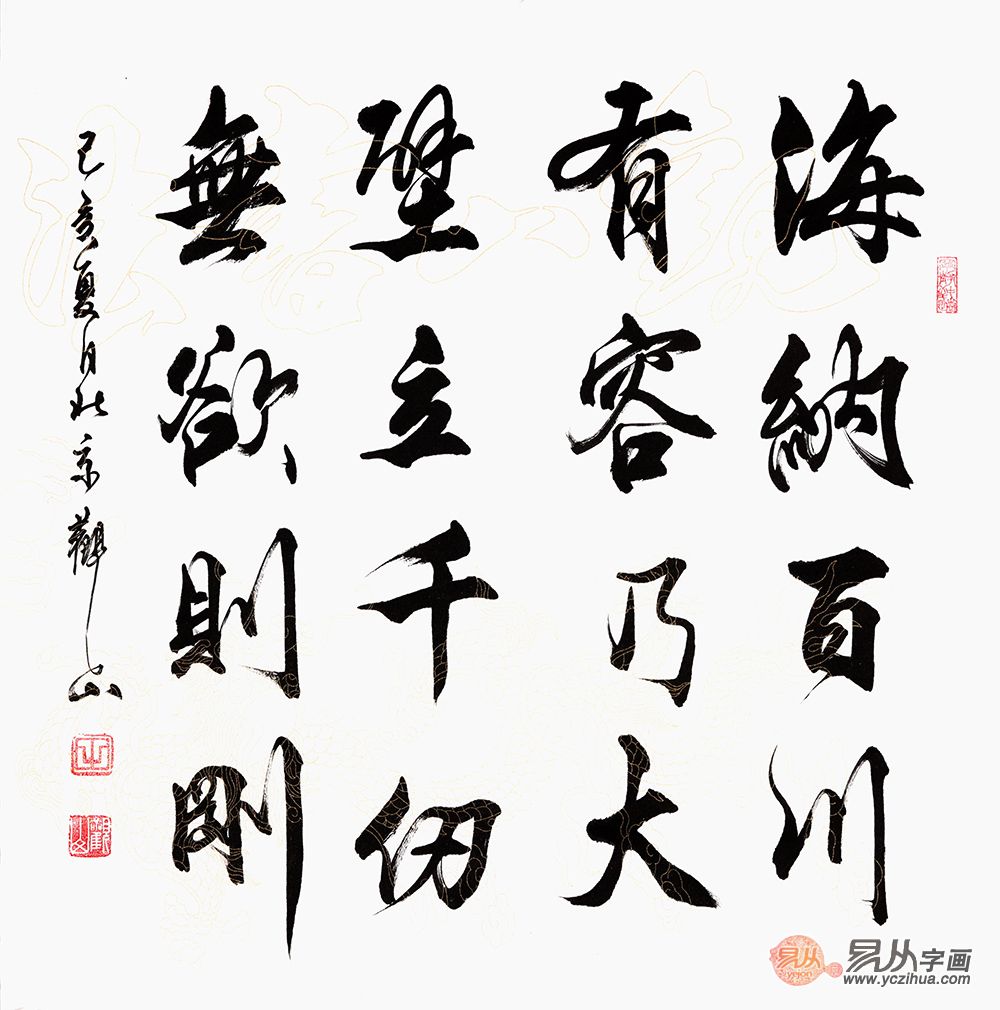 海納百川
有容乃大
壁立千仞
無欲則剛
己亥夏月北京觀山
易从
易从字画
www.yczihua.com